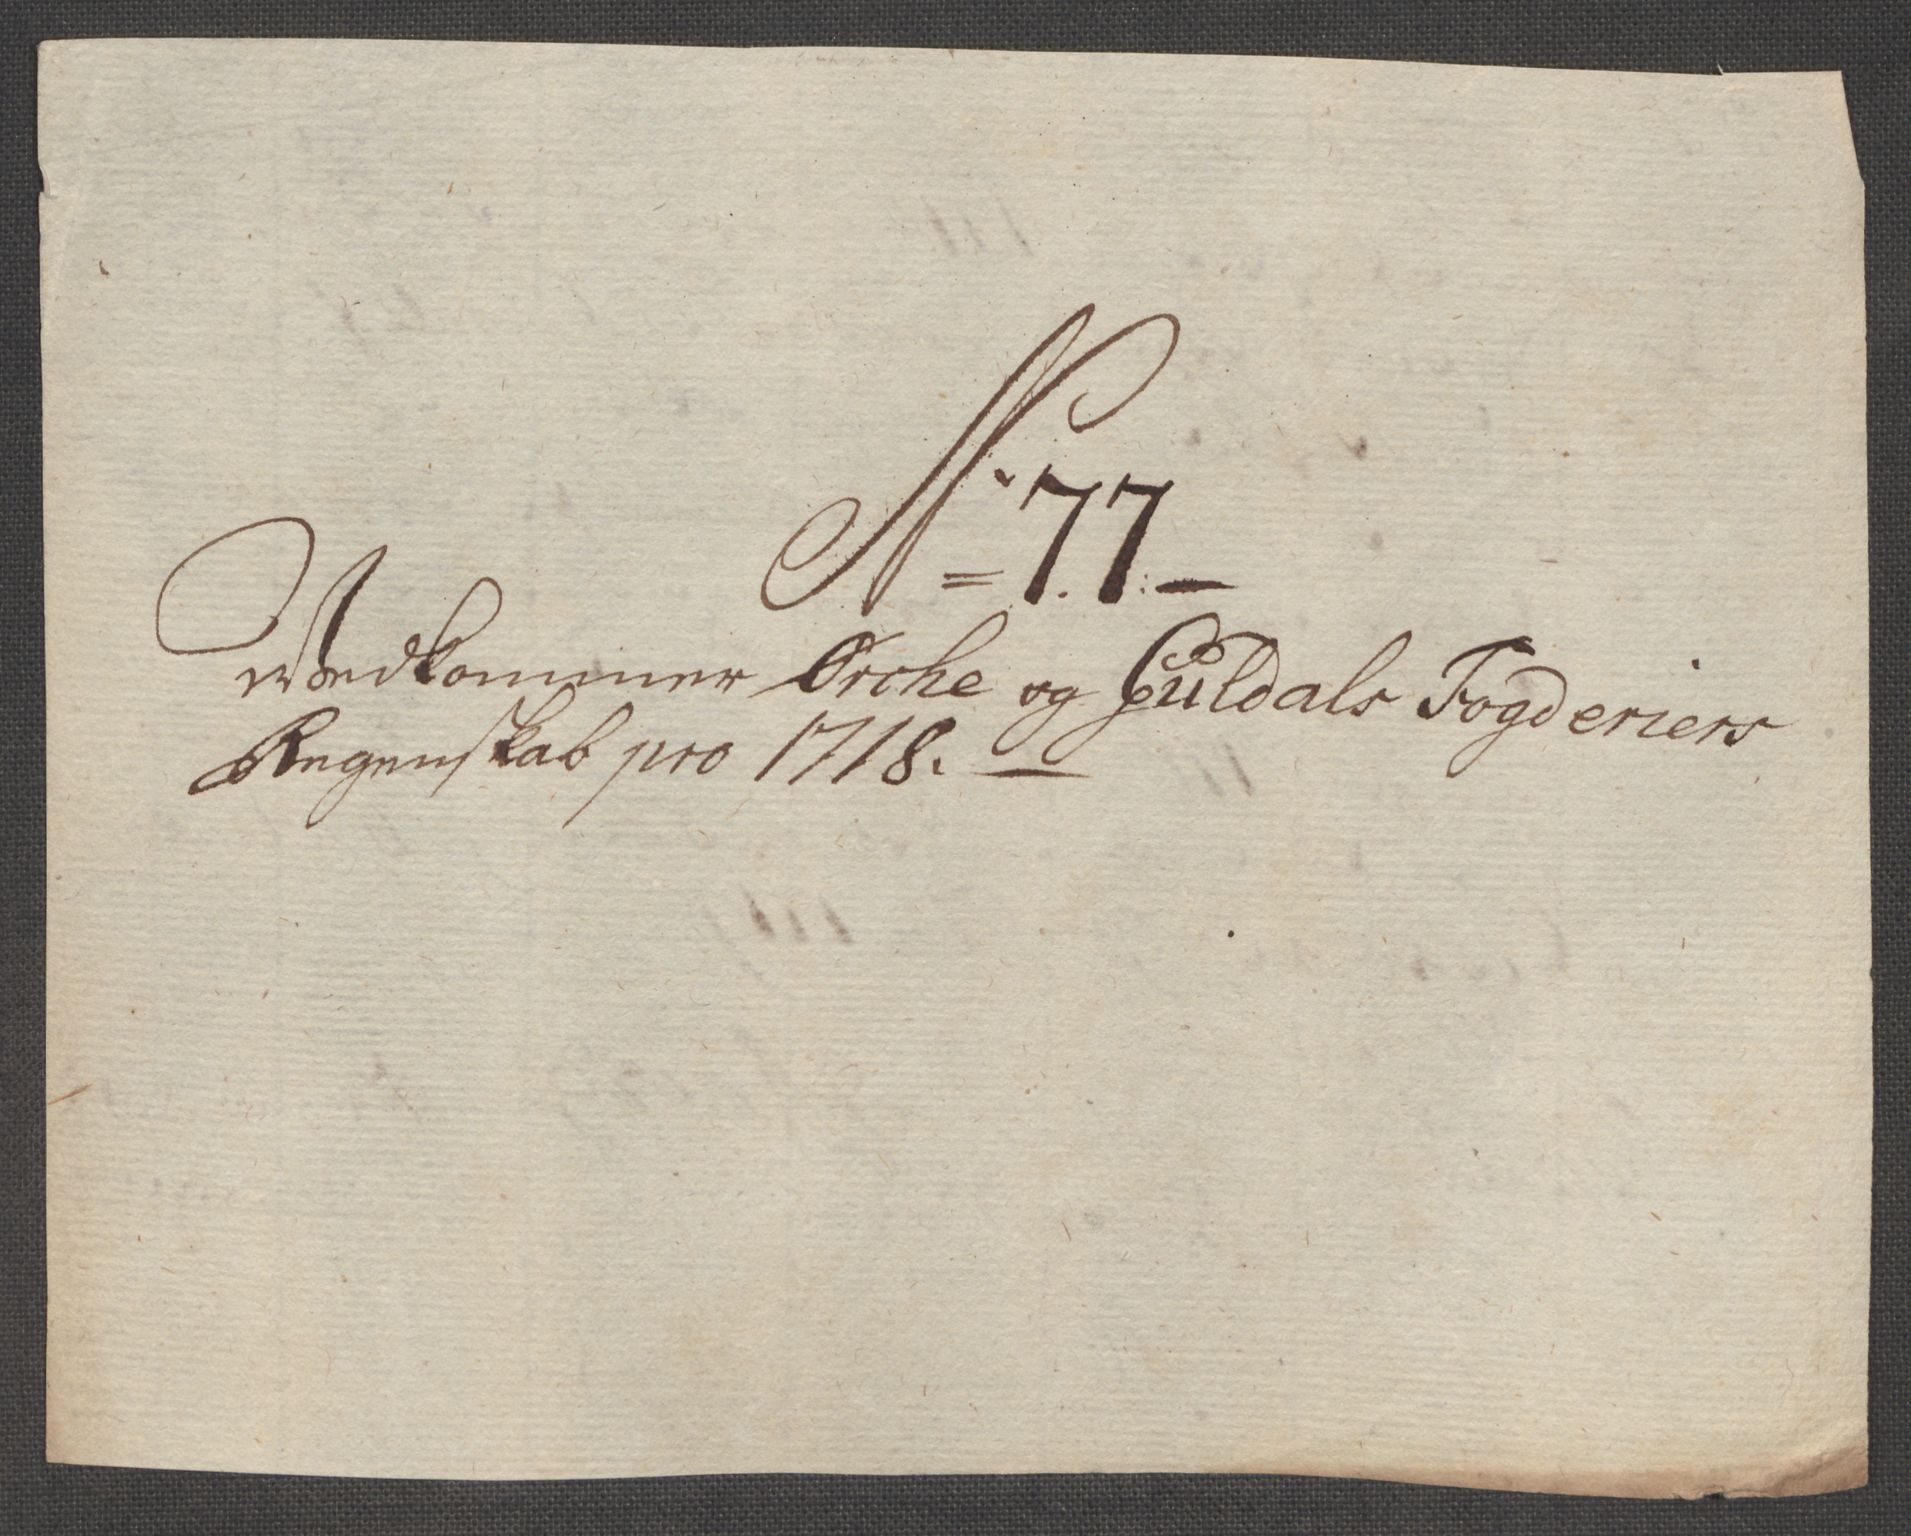 No 77.
Wedkommer Orche og Guldals Fogderiers
Regenskab pro 1718.